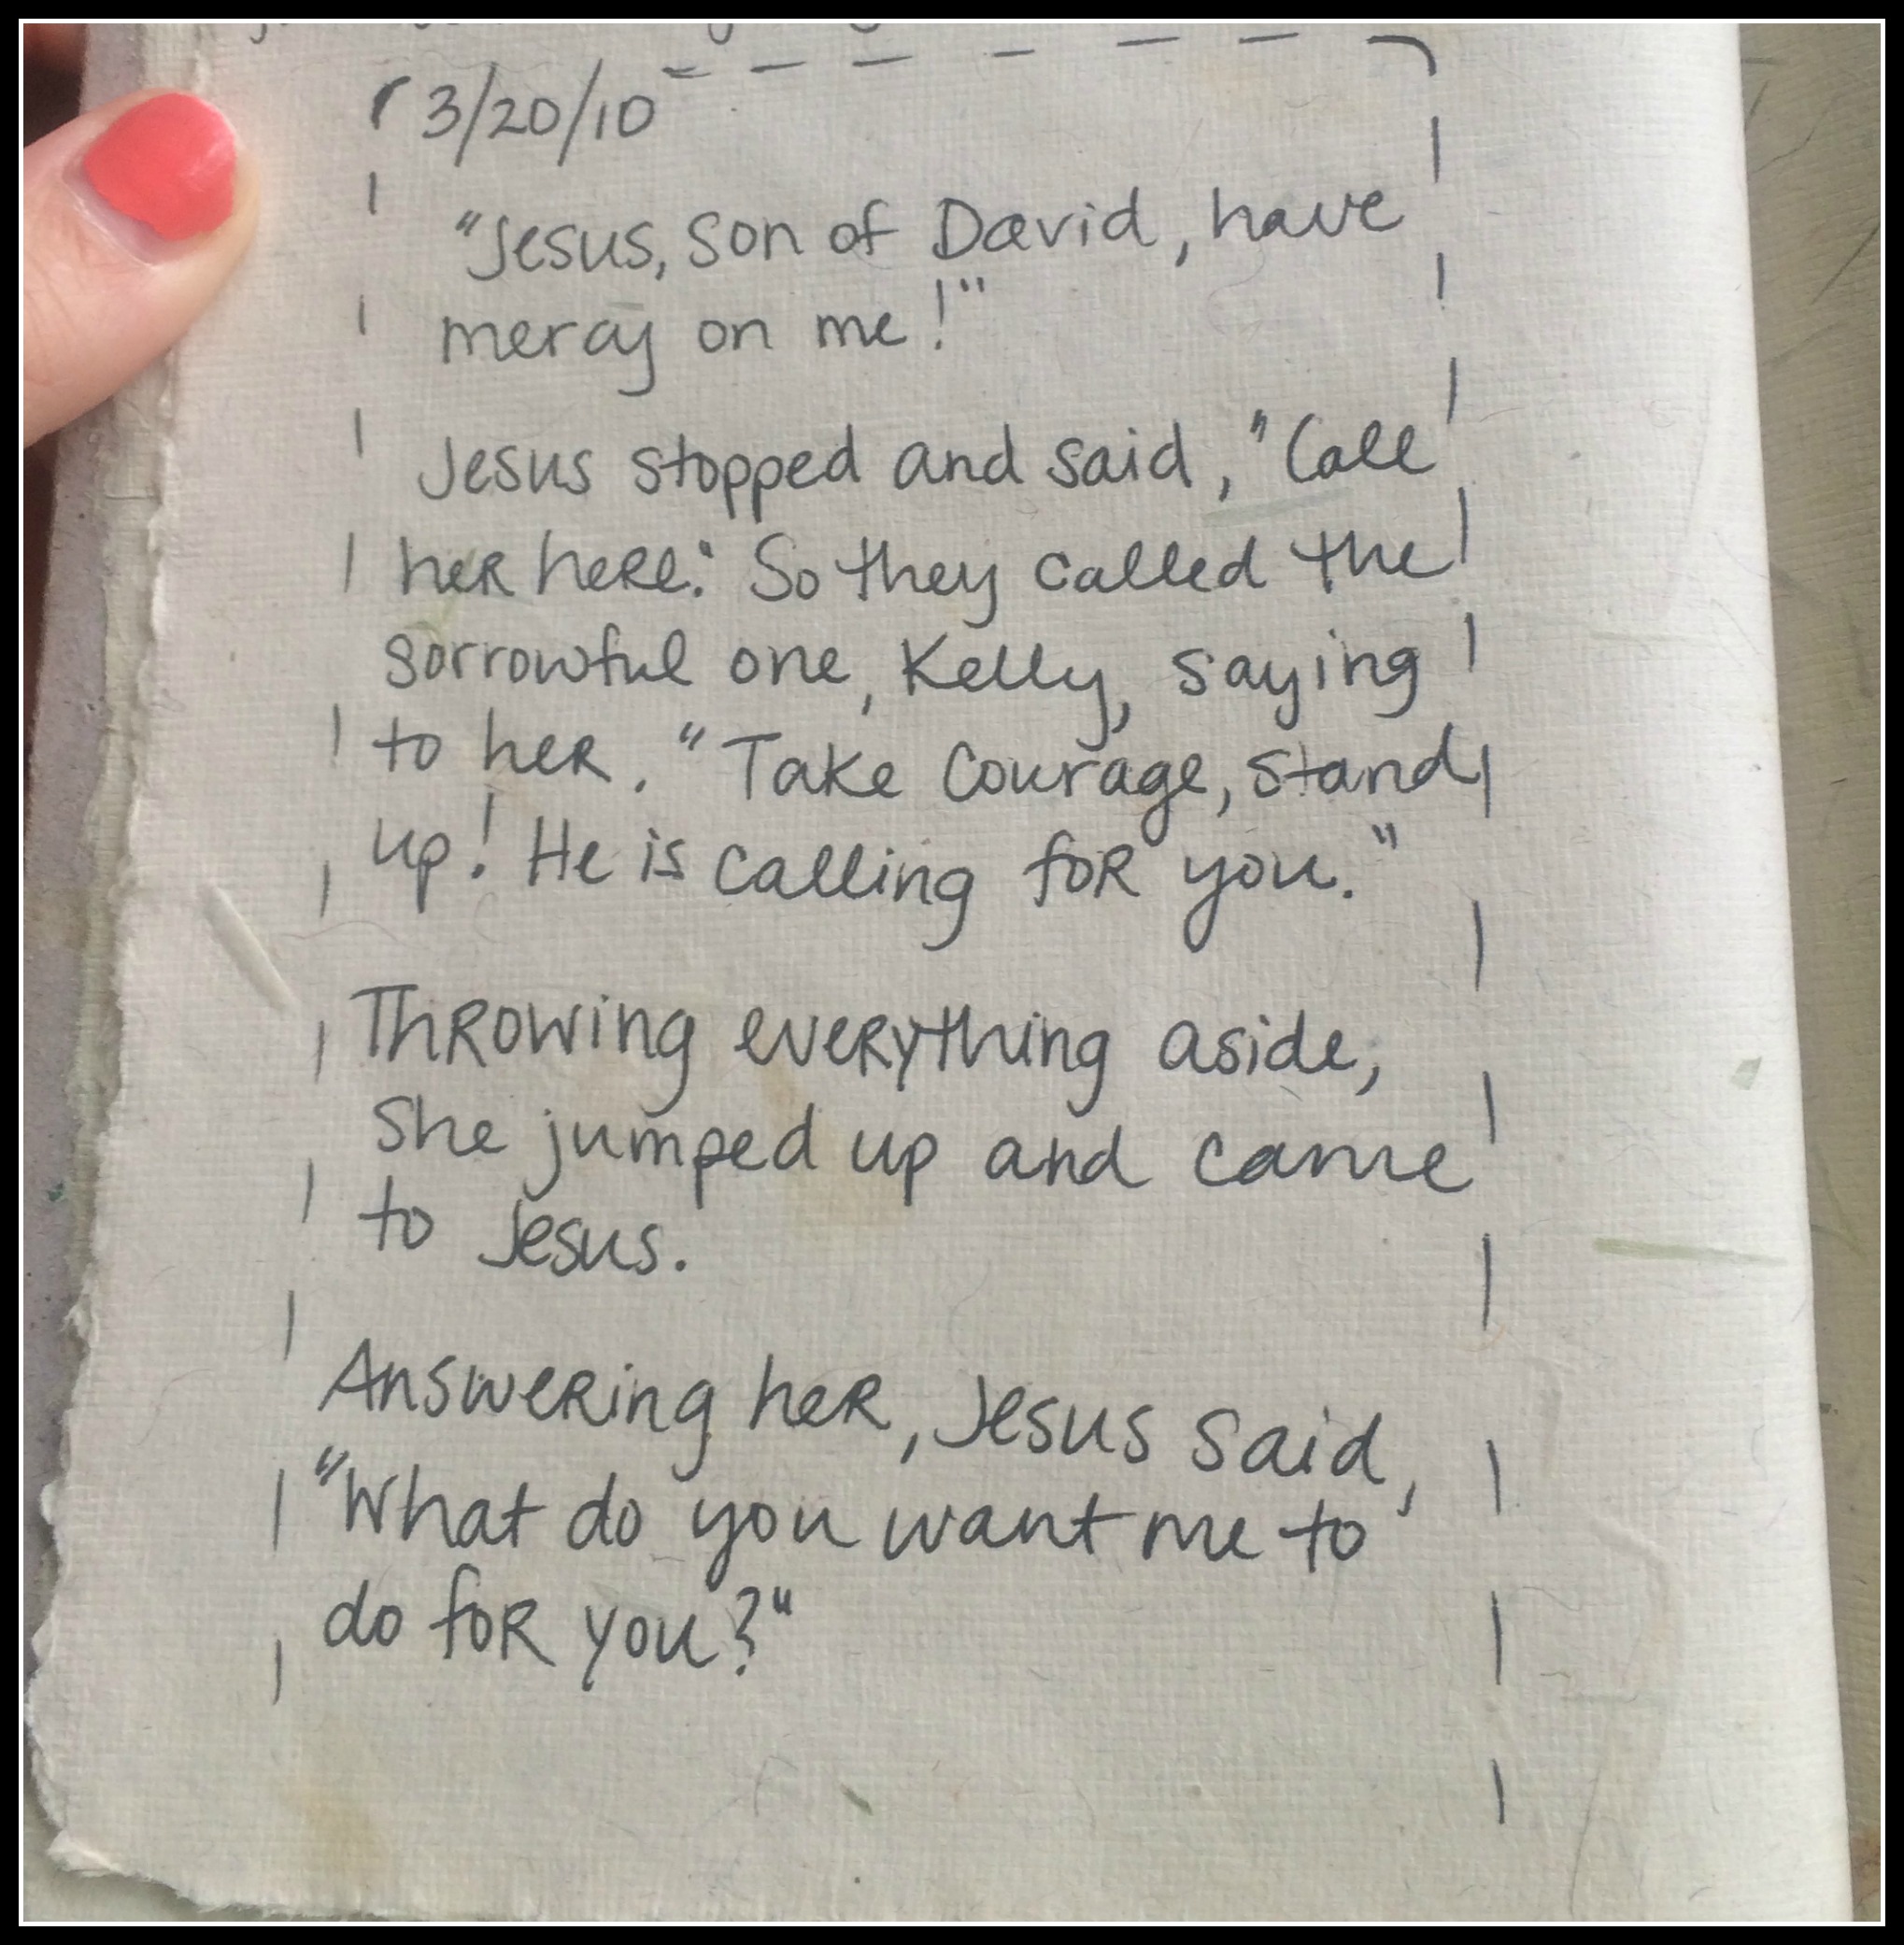 3/20/10
"Jesus, son of David, have
mercy on me!"
Jesus stopped and said, "Call
her here." So they called the
sorrowful one, Kelly, saying
to her, "Take courage, stand
up! He is calling for you."
Throwing everything aside,
she jumped up and came
to Jesus.
Answering her, Jesus said,
"What do you want me to
do for you?"